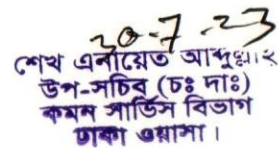 30-7-23
শেখ এনায়েত আব্দুল্লাহ
উপ-সচিব (চঃ দাঃ)
কমন সার্ভিস বিভাগ
ঢাকা ওয়াসা।